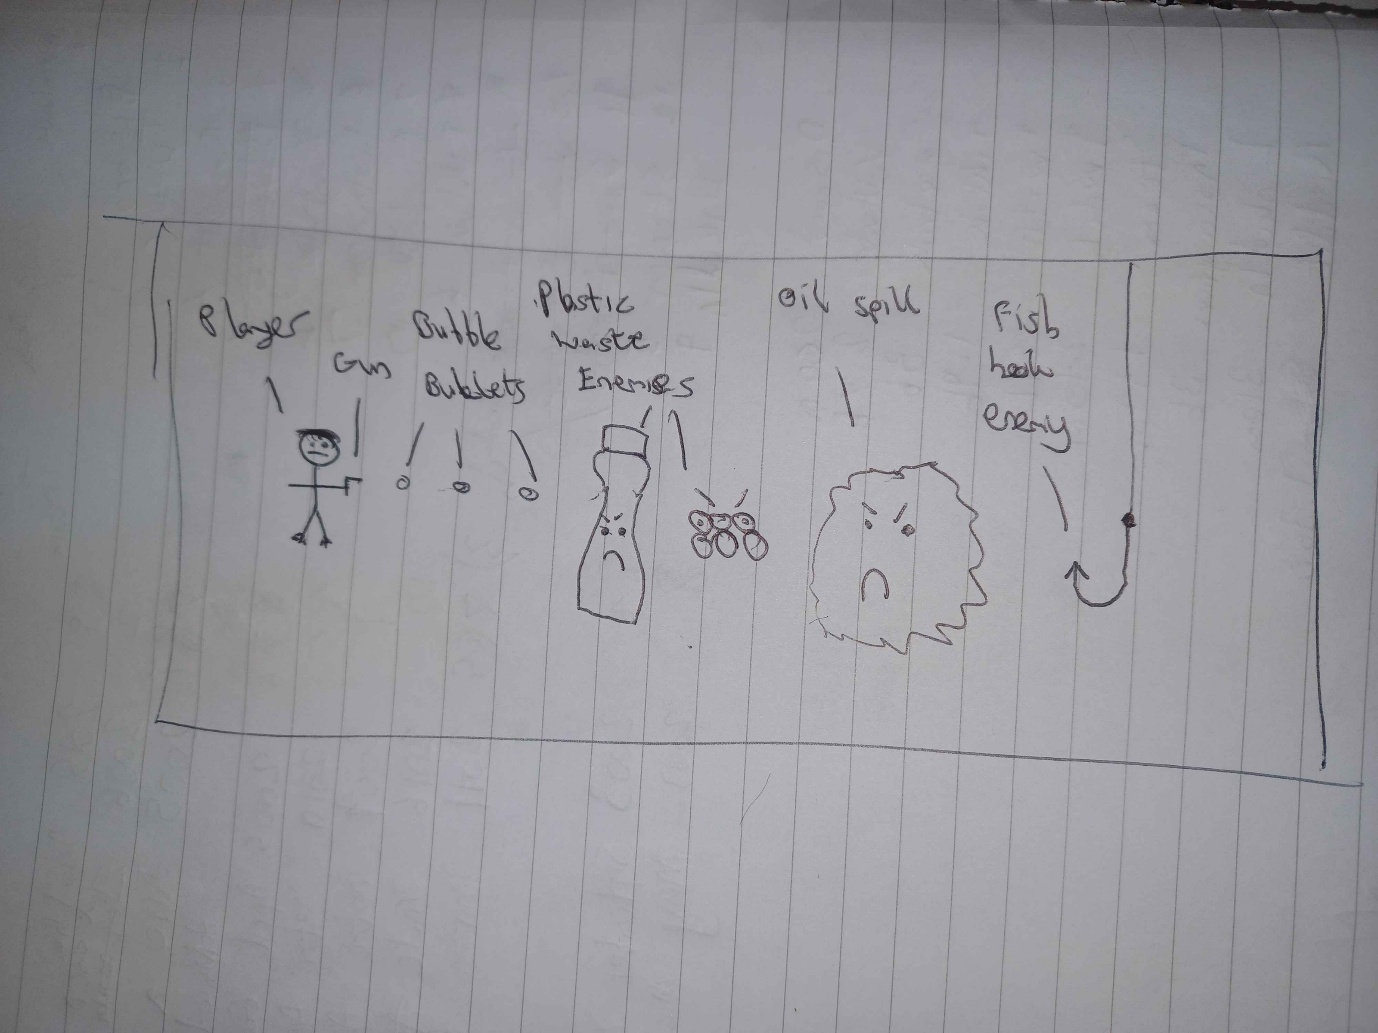 Player
Gun
Bubble
Bubblets
Plastic
waste
Enemies
oil spill
Fish
hook
enemy